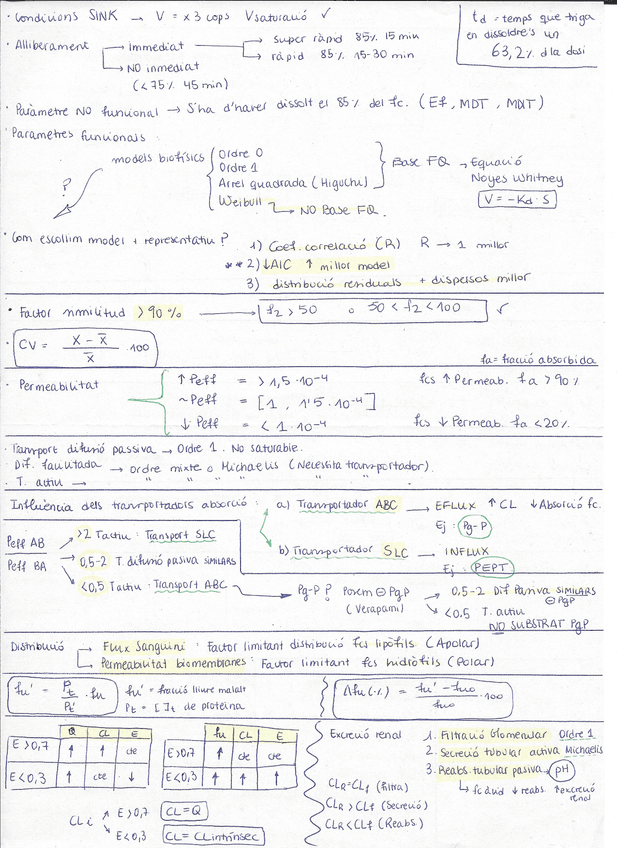 · Condicions SINK → V = x 3 cops Vsaturació ✓
td = temps que triga
en dissoldre's un
63,2% d la dosi
· Alliberament → Immediat → super ràpid 85% 15 min
→ ràpid 85% 15-30 min
→ NO inmediat
(<75% 45 min)
· Paràmetre NO funcional → S'ha d'haver dissolt el 85% del fc. (Ef, MDT, MDIT)
· Parametres funcionals :
models biofísics
Ordre 0
Ordre 1
Arrel quadrada (Higuchi)
Base FQ → Equació
Noyes Whitney
V = -Kd · S
Weibull → NO Base FQ.
?
· Com escollim model + representatiu ?
1) Coef. correlació (R) R → 1 millor
** 2) ↓AIC ↑ millor model
3) distribució residuals + dispersos millor
· Factor similitud > 90% → f2 > 50 o 50 < f2 < 100 ✓
· CV = X - x̄ / x̄ · 100
fa = fracció absorbida
· Permeabilitat
↑ Peff = > 1,5 · 10⁻⁴ fcs ↑ Permeab. fa > 90%
~ Peff = [1 , 1'5 · 10⁻⁴]
↓ Peff = < 1 · 10⁻⁴ fcs ↓ Permeab. fa < 20%
· Transport difusió passiva → Ordre 1. No saturable.
· Dif. facilitada → ordre mixte o Michaelis (Necessita transportador).
· T. actiu → " " " " "
Influència dels transportadors absorció :
a) Transportador ABC → EFLUX ↑ CL ↓ Absorció fc.
Ej : Pg-P
b) Transportador SLC → INFLUX
Ej : PEPT
Peff AB / Peff BA
>2 T actiu : Transport SLC
0,5-2 T. difusió pasiva SIMILARS
<0,5 T actiu : Transport ABC → Pg-P ? Posem ⊖ Pg.P
(Verapami)
0,5-2 Dif Pasiva SIMILARS
⊖ PgP
<0.5 T. actiu
NO SUBSTRAT PgP
Distribució → Flux Sanguini : Factor limitant distribució fcs lipòfils (Apolar)
→ Permeabilitat biomembranes : Factor limitant fcs hidròfils (Polar)
fu' = Pt / Pt' · fu
fu' = fracció lliure malalt
Pt = [ ]t de proteïna
Δfu (%) = fu' - fuo / fuo · 100
Q CL E
E>0,7 ↑ ↑ cte
E<0,3 ↑ cte ↓
fu CL E
E>0,7 ↑ cte cte
E<0,3 ↑ ↑ ↑
CL i
E>0,7 CL = Q
E<0,3 CL = CLintrínsec
Excreció renal
1. Filtració Glomerular Ordre 1
2. Secreció tubular activa Michaelis
3. Reabs. tubular pasiva → pH
↳ fc àcid ↓ reabs. ↑ excreció
renal
CLR = CLf (Filtra)
CLR > CLf (Secreció)
CLR < CLf (Reabs.)